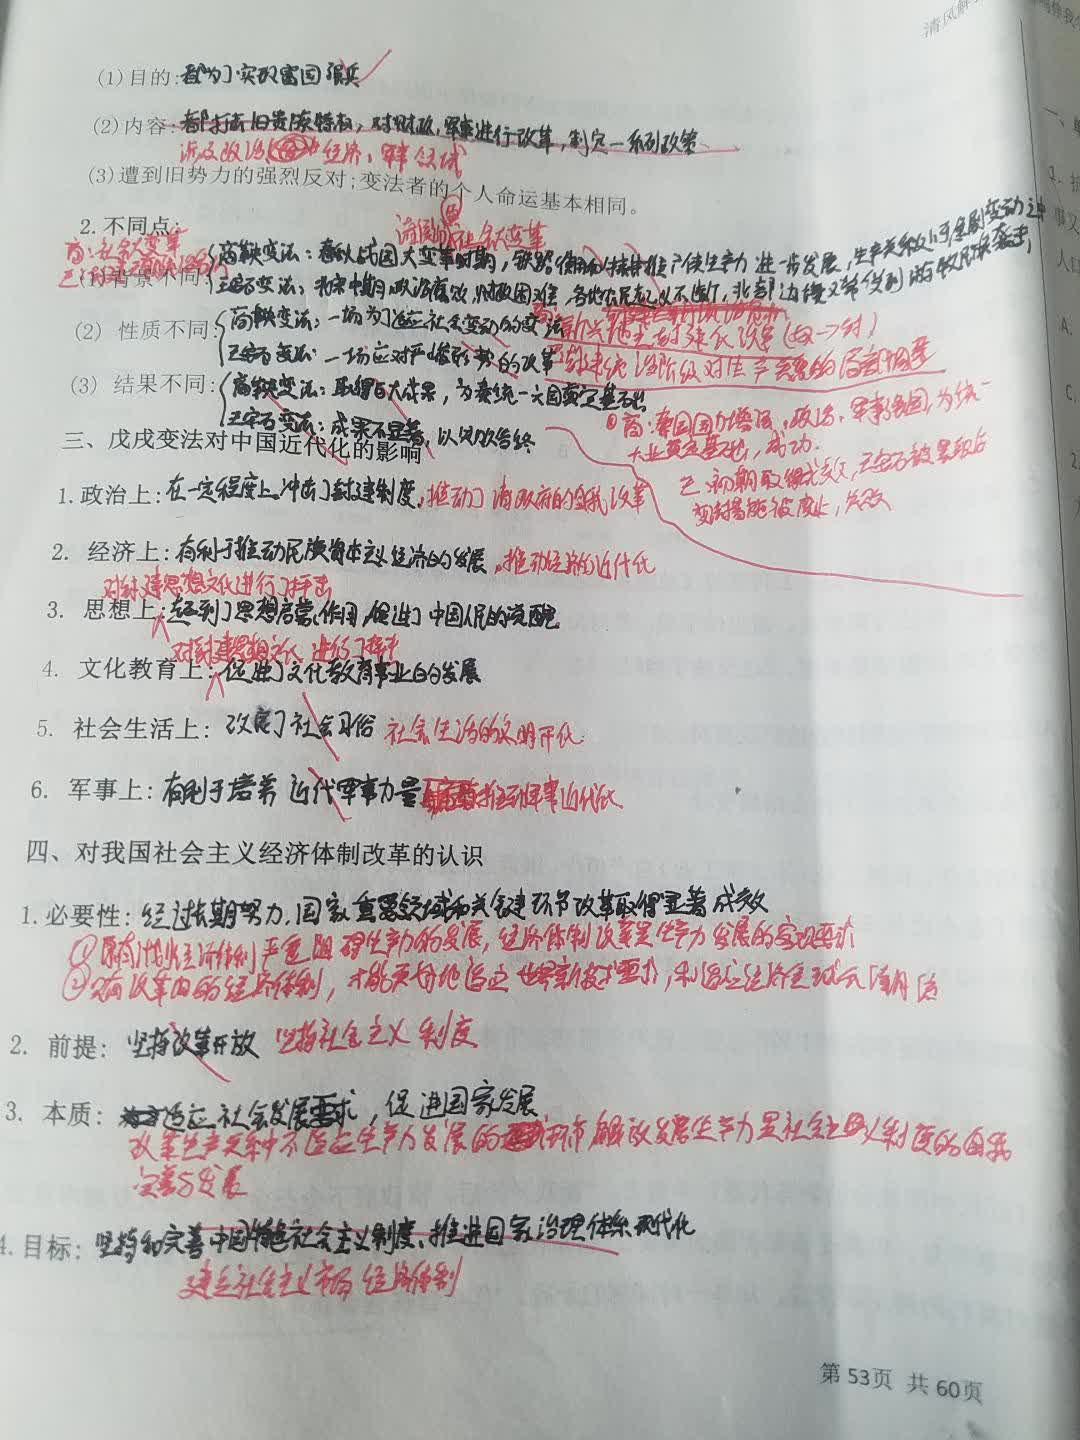 清风解
(1)目的:都为了实现富国强兵
(2)内容:都打击旧贵族特权,对财政,军事进行改革,制定一系列政策
涉及政治 经济、军事领域
(3)遭到旧势力的强烈反对;变法者的个人命运基本相同。
2.不同点:
商:社会大变革
社会大变革
(1)背景不同:
商鞅变法:春秋战国大变革时期,铁器使用和牛耕推广使生产力进一步发展,生产关系
王安石变法:北宋中期政治腐败,财政困难,各地农民起义不断,北部边境又常受到游牧民族袭击,
(2) 性质不同:
商鞅变法:一场为了适应社会变动的变法
新兴地主封建化改革
王安石变法:一场应对严峻形势的改革
封建统治阶级对生产关系的局部调整
(3) 结果不同:
商鞅变法:取得巨大成果,为秦统一六国奠定基础
王安石变法:成果不显著,以失败告终
商:秦国国力增强,政治、军事强国,为统一
大业奠定基础,成功.
王:初期取得成效,王安石被罢职后
变封措施被废止,失败
三、戊戌变法对中国近代化的影响
1.政治上:在一定程度上冲击了封建制度,推动了清政府的自我改革
2. 经济上:有利于推动民族资本主义经济的发展,推动经济的近代化
对封建思想文化进行了抨击
3. 思想上:起到了思想启蒙作用,促进了中国人民的觉醒
对封建思想文化进行了抨击
4. 文化教育上:促进了文化教育事业的发展
5. 社会生活上:改变了社会习俗 社会生活的文明开化
6. 军事上:有利于培养近代军事力量 推动军事近代化
四、对我国社会主义经济体制改革的认识
1.必要性:经过长期努力,国家重要领域和关键环节改革取得显著成效
①原有计划经济体制严重阻碍生产力的发展,经济体制改革是生产力发展的客观要求
②只有改革旧的经济体制,才能更好地适应世界新技术要求,和适应经济全球化
2. 前提:坚持改革开放 坚持社会主义制度
3. 本质:适应社会发展要求,促进国家发展
改革生产关系中不适应生产力发展的环节 解放发展生产力是社会主义制度的自我
完善与发展
4.目标:坚持和完善中国特色社会主义制度、推进国家治理体系现代化
建立社会主义市场经济体制
第 53页 共 60页